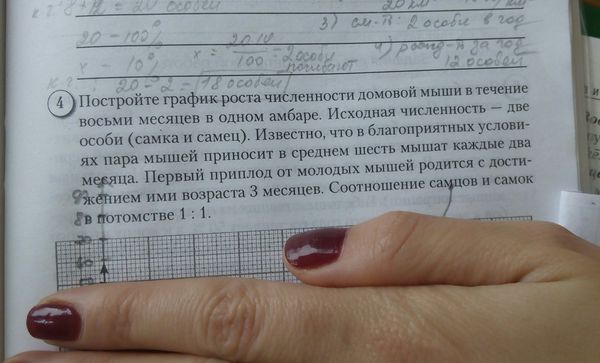 8 + 12 = 20 особей
20 км
км
3) см-ть: 2 особи в год
20 - 100%
x - 10%
x = 20·10 / 100 = 2 особи
погибают
4) рожд-ть за год
12 особей
20 - 2 = 18 особей
4 Постройте график роста численности домовой мыши в течение
восьми месяцев в одном амбаре. Исходная численность — две
особи (самка и самец). Известно, что в благоприятных услови-
ях пара мышей приносит в среднем шесть мышат каждые два
месяца. Первый приплод от молодых мышей родится с дости-
жением ими возраста 3 месяцев. Соотношение самцов и самок
в потомстве 1 : 1.